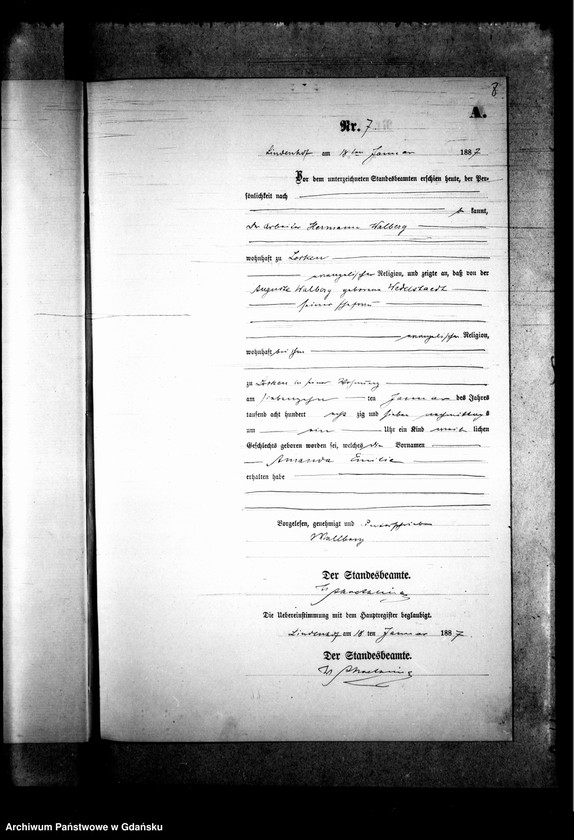 8
A.
Nr. 7
Lindenhof am 18 ten Januar 1887
Vor dem unterzeichneten Standesbeamten erschien heute, der Per-
sönlichkeit nach
kannt,
Der Arbeiter Hermann Walberg
wohnhaft zu Losken
evangelischer Religion, und zeigte an, daß von der
Auguste Walberg geborene
seiner Ehefrau
evangelischer Religion,
wohnhaft bei ihm
zu Losken in seiner Wohnung
am siebenzehn ten Januar des Jahres
tausend acht hundert acht zig und sieben nachmittags
um ein Uhr ein Kind weib lichen
Geschlechts geboren worden sei, welches die Vornamen
Amanda Emilie
erhalten habe
Vorgelesen, genehmigt und unterschrieben
Wallberg
Der Standesbeamte.
Die Uebereinstimmung mit dem Hauptregister beglaubigt.
Lindenhof am 18 ten Januar 1887.
Der Standesbeamte.
Archiwum Państwowe w Gdańsku